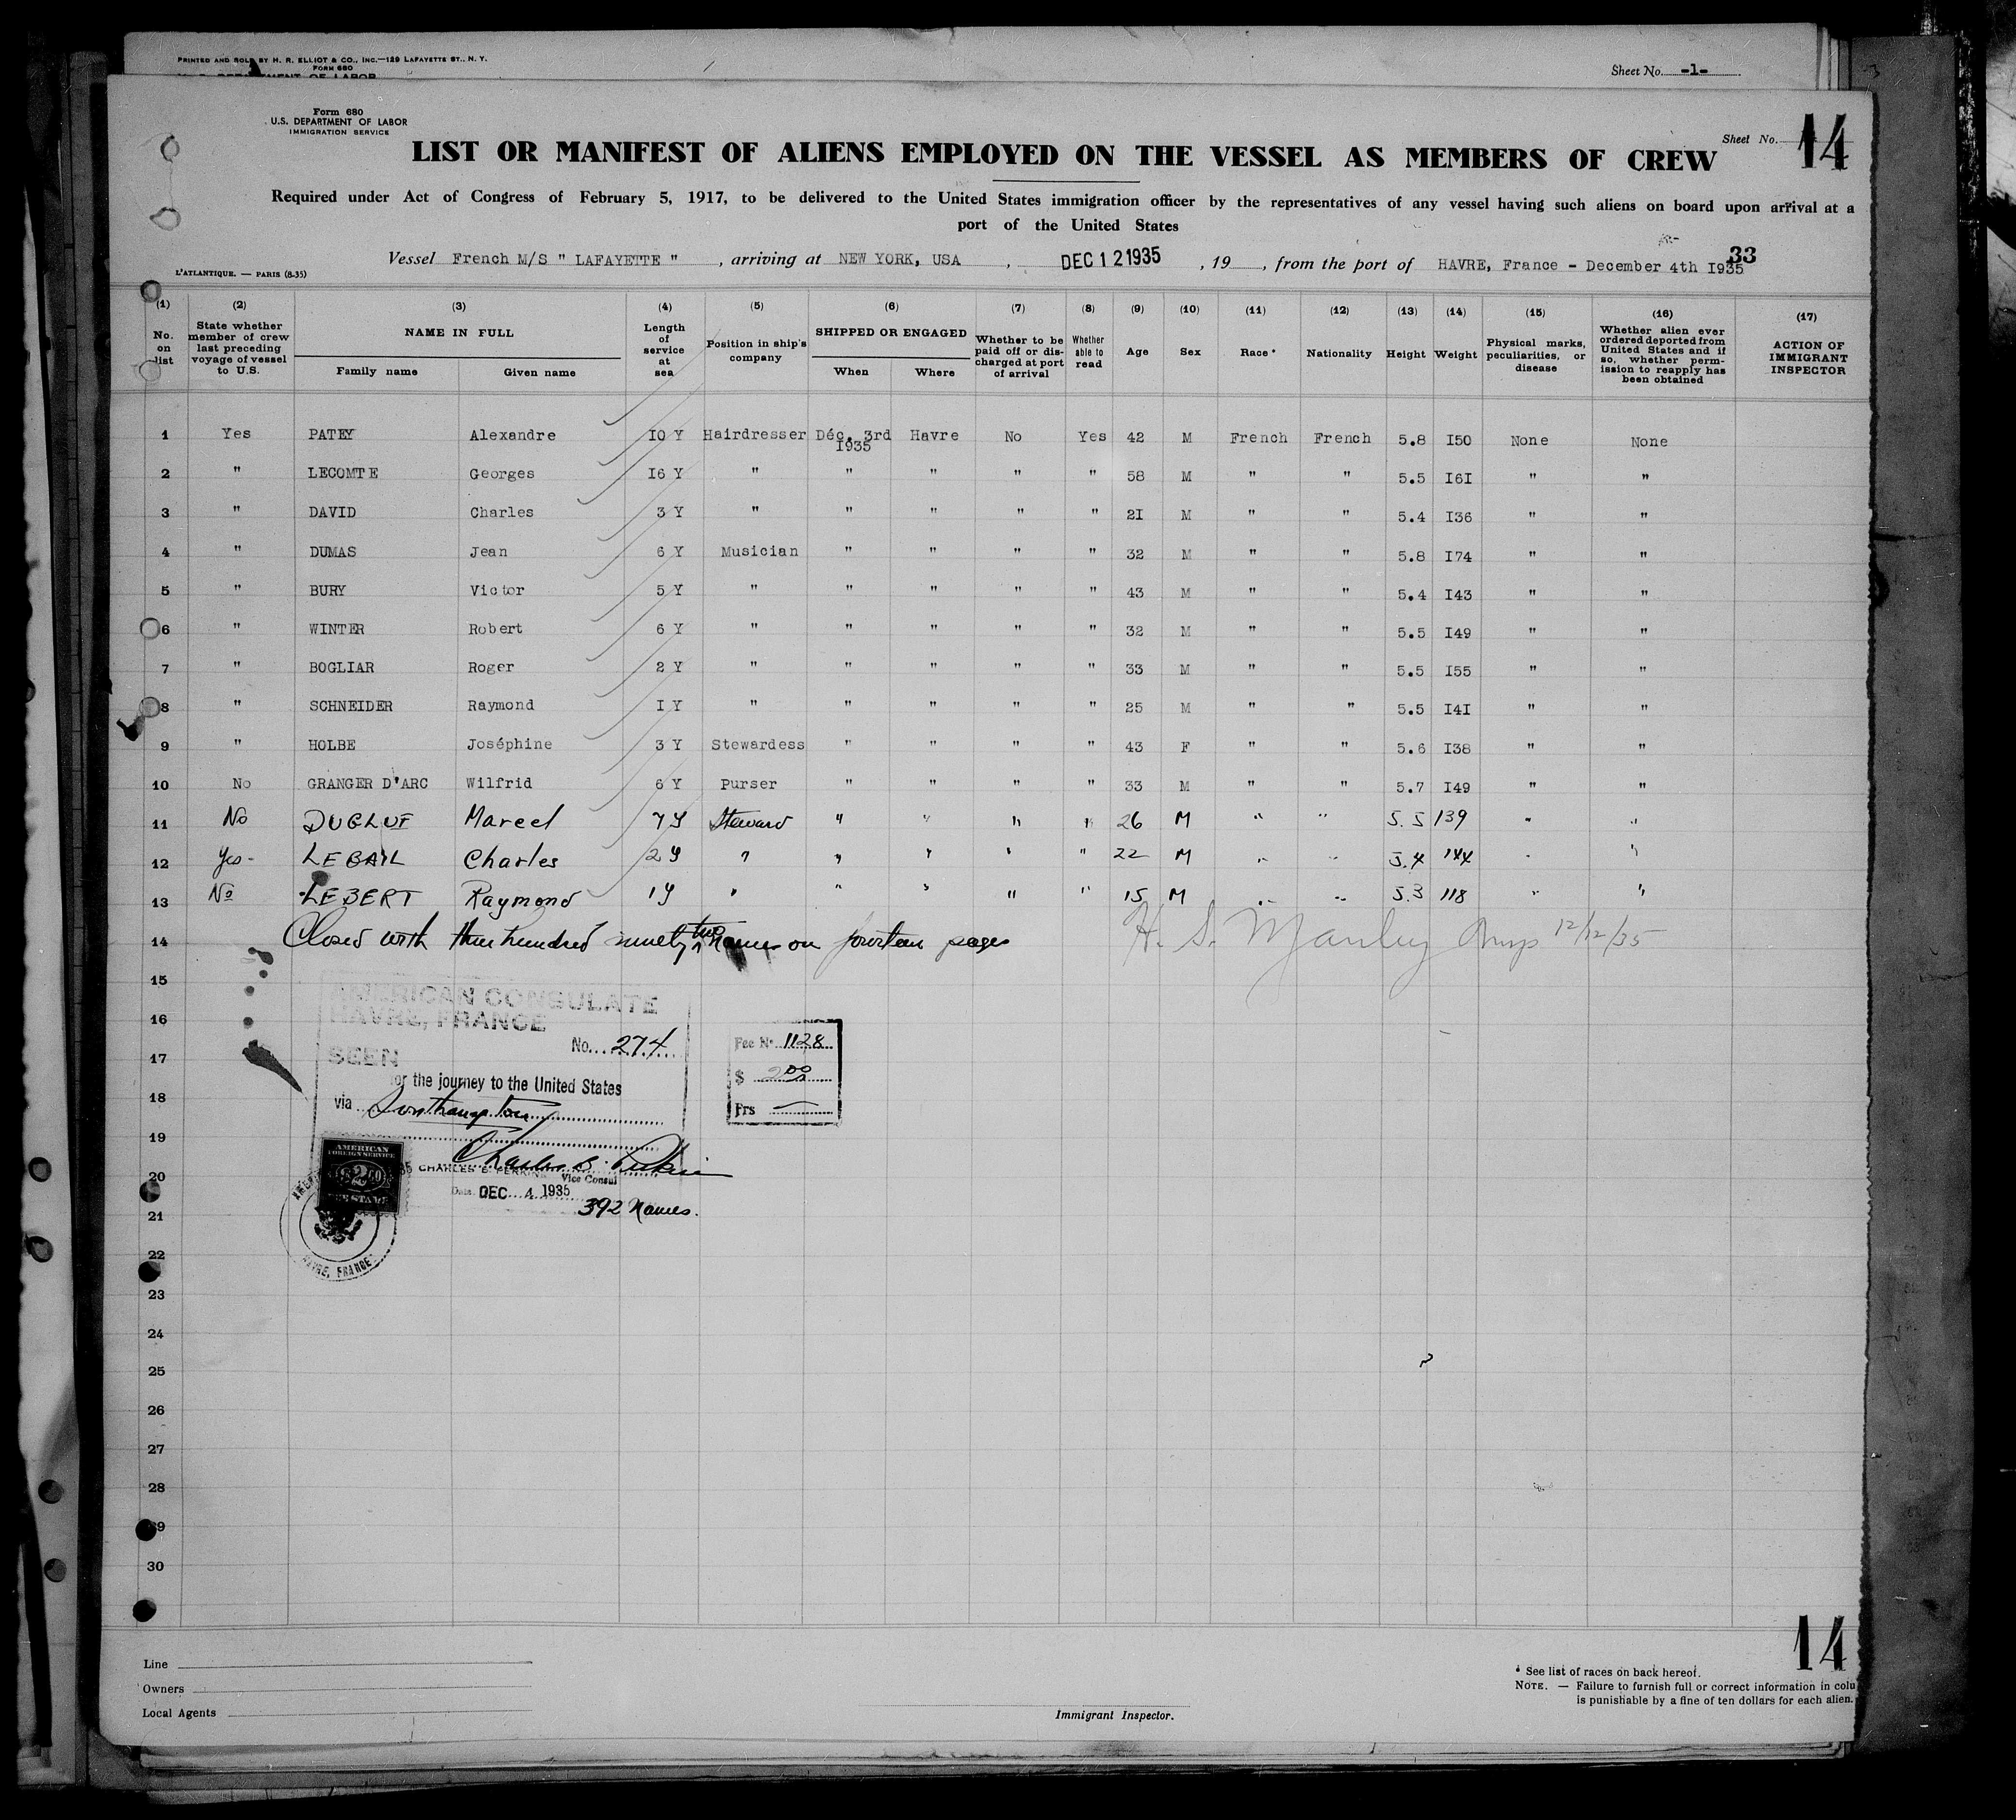 PRINTED AND SOLD BY H. R. ELLIOT & CO., INC.—129 LAFAYETTE ST., N. Y.
FORM 680
U. S. DEPARTMENT OF LABOR
Sheet No. -1-
Form 680
U.S. DEPARTMENT OF LABOR
IMMIGRATION SERVICE
Sheet No. 14
LIST OR MANIFEST OF ALIENS EMPLOYED ON THE VESSEL AS MEMBERS OF CREW
Required under Act of Congress of February 5, 1917, to be delivered to the United States immigration officer by the representatives of any vessel having such aliens on board upon arrival at a
port of the United States
33
Vessel French M/S " LAFAYETTE " , arriving at NEW YORK, USA , DEC 12 1935 , 19 , from the port of HAVRE, France - December 4th I935
L'ATLANTIQUE. — PARIS (8-35)
(1) No. on list (2) State whether member of crew last preceding voyage of vessel to U.S. (3) NAME IN FULL Family name Given name (4) Length of service at sea (5) Position in ship's company (6) SHIPPED OR ENGAGED When Where (7) Whether to be paid off or discharged at port of arrival (8) Whether able to read (9) Age (10) Sex (11) Race * (12) Nationality (13) Height (14) Weight (15) Physical marks, peculiarities, or disease (16) Whether alien ever ordered deported from United States and if so, whether permission to reapply has been obtained (17) ACTION OF IMMIGRANT INSPECTOR
1 Yes PATEY Alexandre IO Y Hairdresser Déc. 3rd I935 Havre No Yes 42 M French French 5.8 I50 None None
2 " LECOMTE Georges I6 Y " " " " " 58 M " " 5.5 I6I " "
3 " DAVID Charles 3 Y " " " " " 2I M " " 5.4 I36 " "
4 " DUMAS Jean 6 Y Musician " " " " 32 M " " 5.8 I74 " "
5 " BURY Victor 5 Y " " " " " 43 M " " 5.4 I43 " "
6 " WINTER Robert 6 Y " " " " " 32 M " " 5.5 I49 " "
7 " BOGLIAR Roger 2 Y " " " " " 33 M " " 5.5 I55 " "
8 " SCHNEIDER Raymond I Y " " " " " 25 M " " 5.5 I4I " "
9 " HOLBE Joséphine 3 Y Stewardess " " " " 43 F " " 5.6 I38 " "
10 No GRANGER D'ARC Wilfrid 6 Y Purser " " " " 33 M " " 5.7 I49 " "
11 No Marcel 7 Y Steward " " " " 26 M " " 5.5 139 " "
12 Yes - LEBAIL Charles 2 Y " " " " " 22 M " " 5.4 144 " "
13 No LEBERT Raymond 1 Y " " " " " 15 M " " 5.3 118 " "
14 Closed with three hundred ninety two names on fourteen pages H. S. Manley Insp 12/12/35
15
AMERICAN CONSULATE
16
HAVRE, FRANCE
No. 274
Fee No 1128
17
SEEN
for the journey to the United States
$ 2.00
18
via Southampton
Frs —
19
AMERICAN
FOREIGN SERVICE
Charles B. Perkins
20
$2.00
CHARLES B. PERKINS
Vice Consul
FEE STAMP
Date DEC 4 1935
21
392 Names.
22
HAVRE, FRANCE
23
24
25
26
27
28
29
30
14
Line
Owners
Local Agents
Immigrant Inspector.
* See list of races on back hereof.
NOTE. — Failure to furnish full or correct information in colu
is punishable by a fine of ten dollars for each alien.